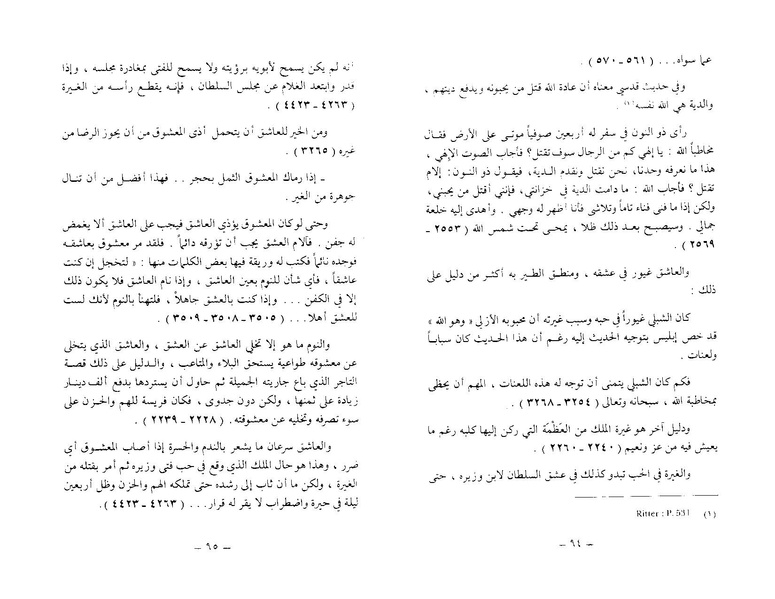 عما سواه... (٥٦١ - ٥٧٠) .
وفي حديث قدسي معناه أن عادة الله قتل من يحبونه ويدفع ديتهم ،
والدية هي الله نفسه(١) .
رأى ذو النون في سفر له أربعين صوفياً موتى على الأرض فقال
مخاطباً الله : يا إلهي كم من الرجال سوف تقتل؟ فأجاب الصوت الإلهي ،
هذا ما نعرفه وحدنا، نحن نقتل ونقدم الدية، فيقول ذو النون: إلام
تقتل ؟ فأجاب الله : ما دامت الدية في خزانتي، فإنني أقتل من يحبني،
ولكن إذا ما فنى فناء تاماً وتلاشى فأنا أظهر له وجهي . وأهدى إليه خلعة
جمالي . وسيصبح بعد ذلك ظلا ، يمحى تحت شمس الله (٢٥٥٣ -
٢٥٦٩) .
والعاشق غيور في عشقه ، ومنطق الطير به أكثر من دليل على
ذلك :
كان الشبلي غيوراً في حبه وسبب غيرته أن محبوبه الأزلي « وهو الله »
قد خص إبليس بتوجيه الحديث إليه رغم أن هذا الحديث كان سباباً
ولعنات .
فكم كان الشبلي يتمنى أن توجه له هذه اللعنات ، المهم أن يحظى
بمخاطبة الله ، سبحانه وتعالى (٣٢٥٤ - ٣٢٦٨) .
ودليل آخر هو غيرة الملك من العَظْمَة التي ركن إليها كلبه رغم ما
يعيش فيه من عز ونعيم (٢٢٤٠ - ٢٢٦٠) .
والغيرة في الحب تبدو كذلك في عشق السلطان لابن وزيره ، حتى
(١) Ritter : P. 531
— ٦٤ —
أنه لم يكن يسمح لأبويه برؤيته ولا يسمح للفتى بمغادرة مجلسه ، وإذا
قدر وابتعد الغلام عن مجلس السلطان ، فإنه يقطع رأسه من الغيرة
(٤٢٦٣ - ٤٤٢٣) .
ومن الخير للعاشق أن يتحمل أذى المعشوق من أن يحوز الرضا من
غيره (٣٢٦٥) .
ـ إذا رماك المعشوق الثمل بحجر .. فهذا أفضل من أن تنال
جوهرة من الغير .
وحتى لو كان المعشوق يؤذي العاشق فيجب على العاشق ألا يغمض
له جفن . فآلام العشق يجب أن تؤرقه دائماً . فلقد مر معشوق بعاشقه
فوجده نائماً فكتب له وريقة فيها بعض الكلمات منها : « لتخجل إن كنت
عاشقاً ، فأي شأن للنوم بعين العاشق ، وإذا نام العاشق فلا يكون ذلك
إلا في الكفن ... وإذا كنت بالعشق جاهلاً ، فلتهنأ بالنوم لأنك لست
للعشق أهلا... (٣٥٠٥ - ٣٥٠٨ - ٣٥٠٩) .
والنوم ما هو إلا تخلي العاشق عن العشق ، والعاشق الذي يتخلى
عن معشوقه طواعية يستحق البلاء والمتاعب ، والدليل على ذلك قصة
التاجر الذي باع جاريته الجميلة ثم حاول أن يستردها بدفع ألف دينار
زيادة على ثمنها ، ولكن دون جدوى ، فكان فريسة للهم والحزن على
سوء تصرفه وتخليه عن معشوقته . (٢٢٢٨ - ٢٢٣٩) .
والعاشق سرعان ما يشعر بالندم والحسرة إذا أصاب المعشوق أي
ضرر ، وهذا هو حال الملك الذي وقع في حب فتى وزيره ثم أمر بقتله من
الغيرة ، ولكن ما أن ثاب إلى رشده حتى تملكه الهم والحزن وظل أربعين
ليلة في حيرة واضطراب لا يقر له قرار... (٤٢٦٣ - ٤٤٢٣) .
— ٦٥ —